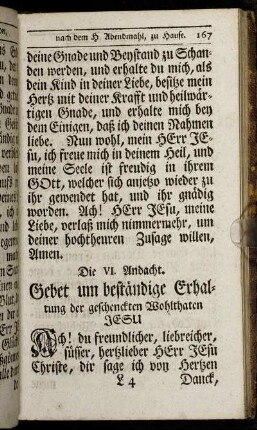 nach dem H. Abendmahl, zu Hause. 167
deine Gnade und Beystand zu Schan-
den werden, und erhalte du mich, als
dein Kind in deiner Liebe, besitze mein
Hertz mit deiner Krafft und heilwär-
tigen Gnade, und erhalte mich bey
dem Einigen, daß ich deinen Nahmen
liebe. Nun wohl, mein HErr JE-
su, ich freue mich in deinem Heil, und
meine Seele ist freudig in ihrem
GOtt, welcher sich anjetzo wieder zu
ihr gewendet hat, und ihr gnädig
worden. Ach! HErr JEsu, meine
Liebe, verlaß mich nimmermehr, um
deiner hochtheuren Zusage willen,
Amen.
Die VI. Andacht.
Gebet um beständige Erhal-
tung der geschenckten Wohlthaten
JESU
Ach! du freundlicher, liebreicher,
süsser, hertzlieber HErr JEsu
Christe, dir sage ich von Hertzen
L 4 Danck,